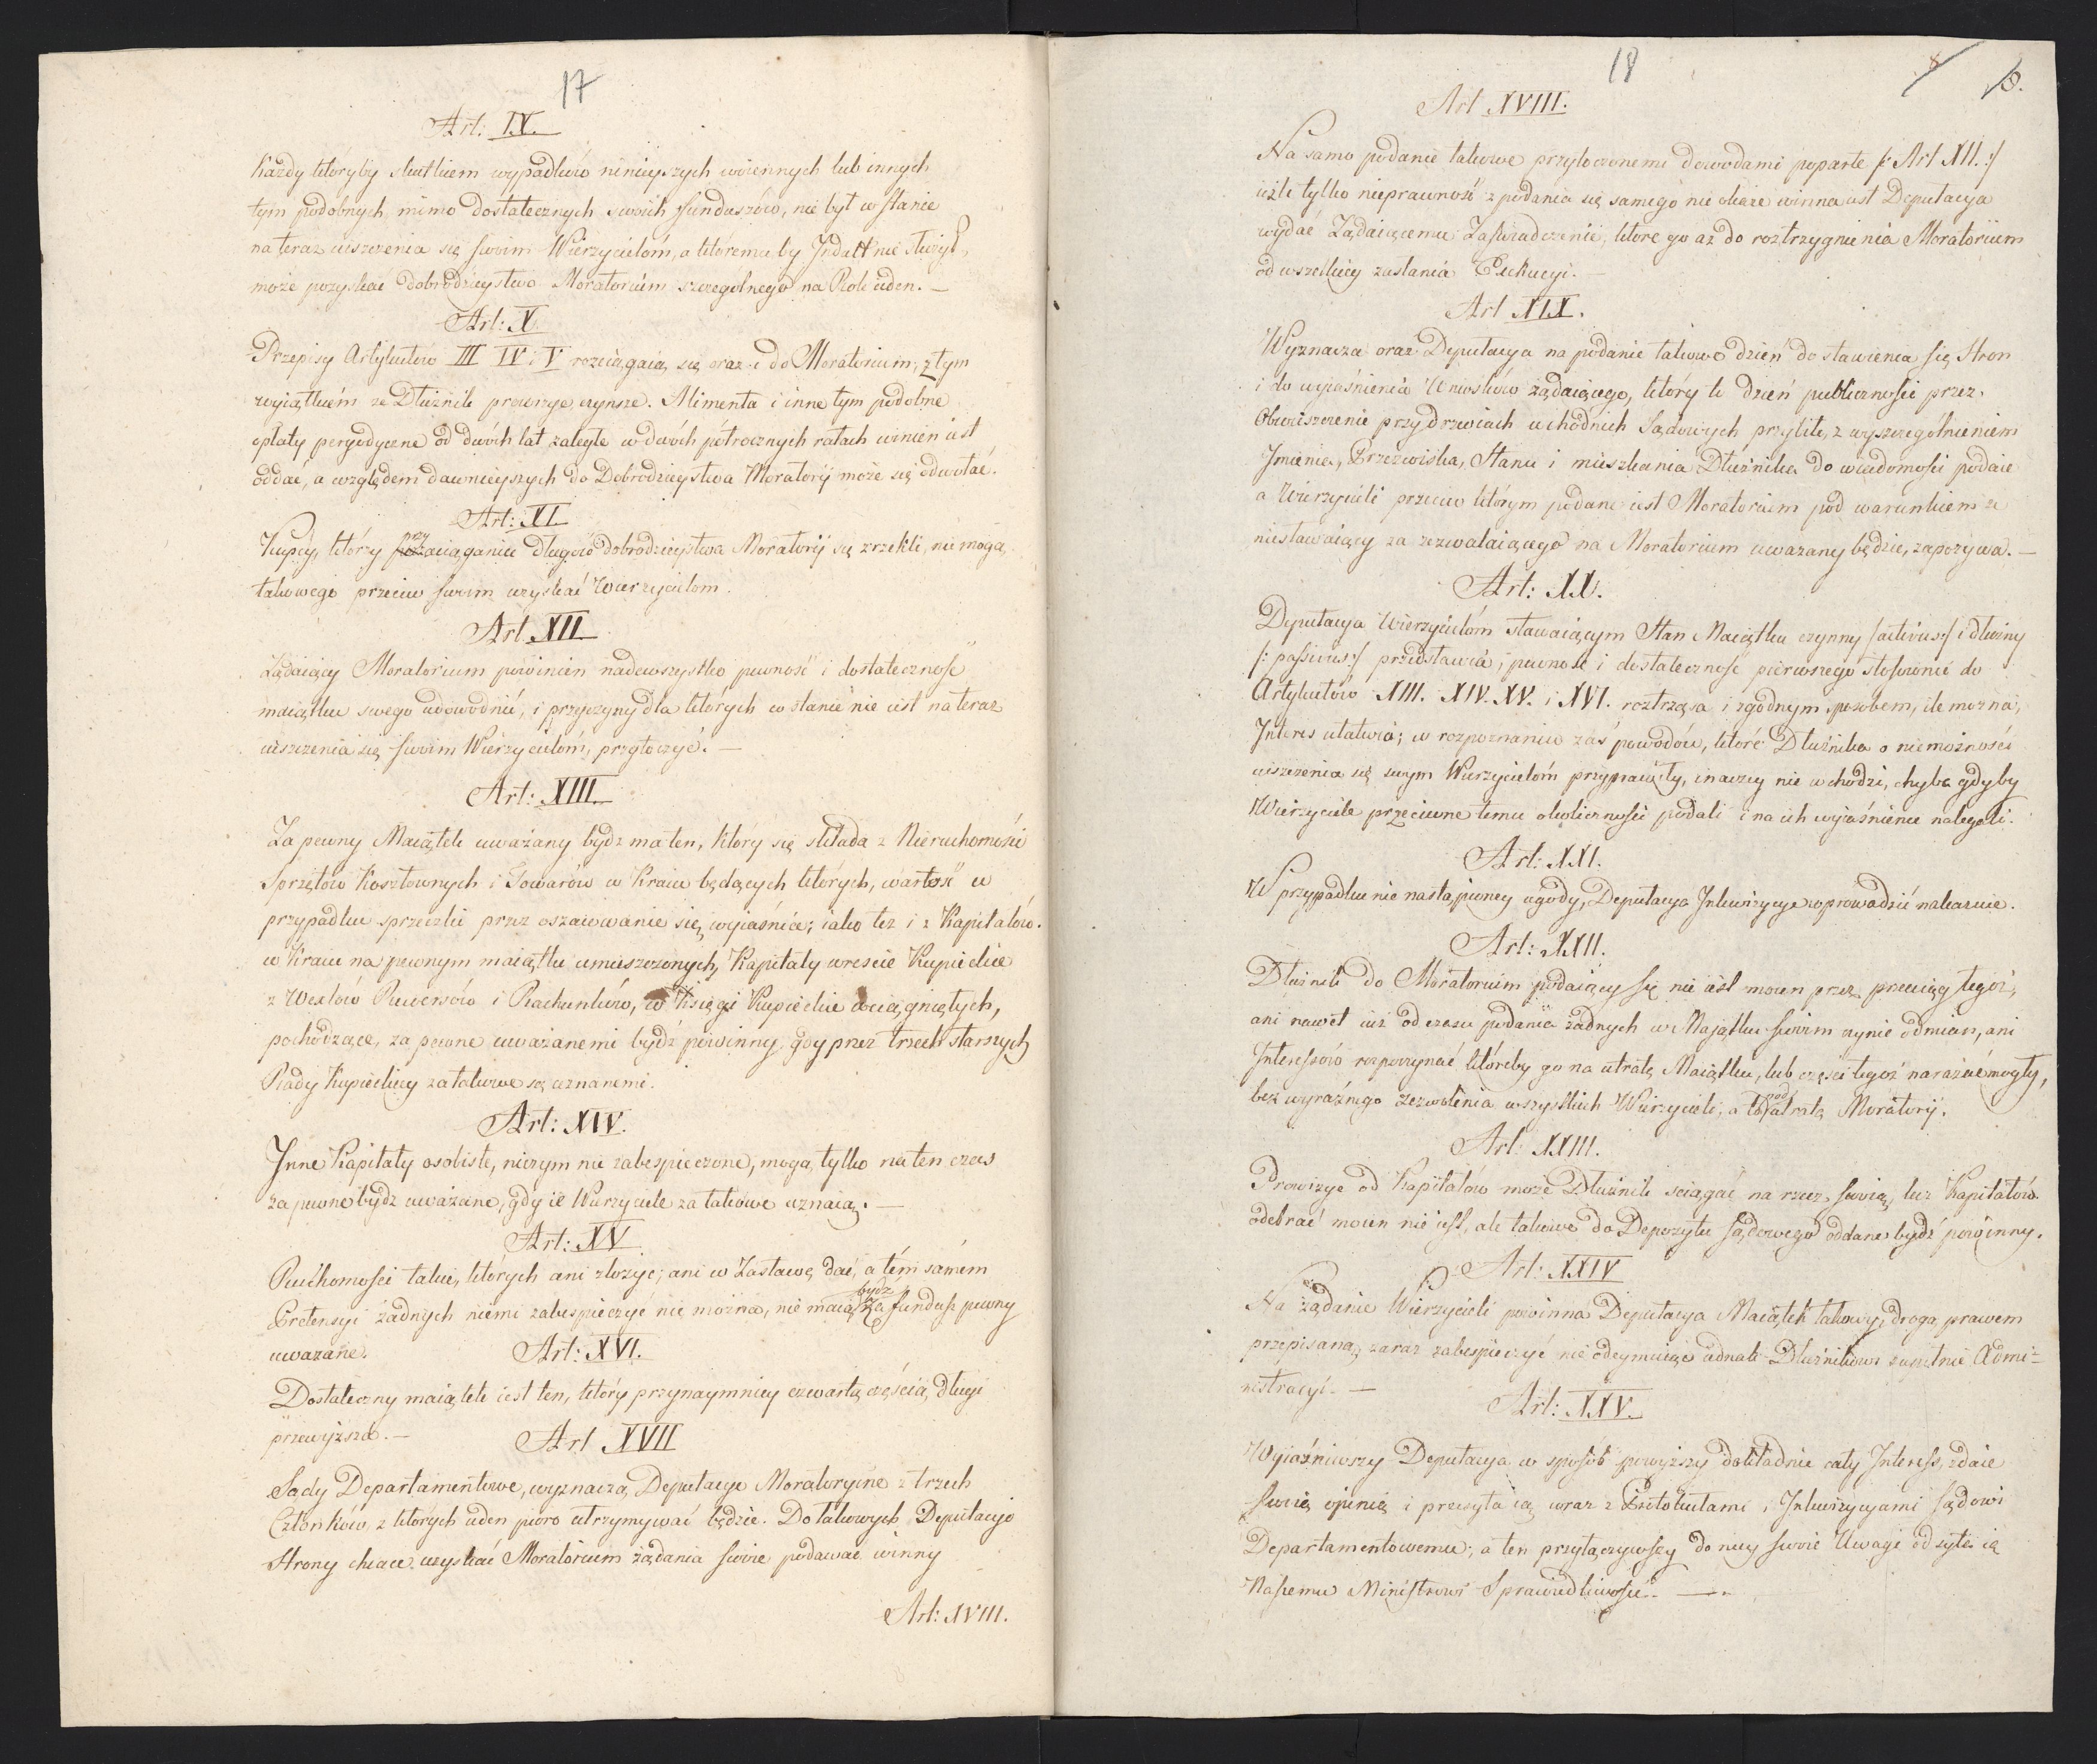 17
Art: IX.
Każdy któryby skutkiem wypadków ninieyszych woiennych lub innych
tym podobnych mimo dostatecznych swoich funduszów, nie był w stanie
na teraz uiszczenia się swoim Wierzycielom, a któremu by Indult nie służył,
może pozyskać dobrodzieystwo Moratorium szczególnego na Rok ieden. —
Art: X
Przepisy Artykułów III IV i V rozciągaią się oraz i do Moratorium, z tym
wyiątkiem że Dłużnik prowizye, czynsze. Alimenta i inne tym podobne
opłaty peryodyczne od dwóch lat zaległe w dwóch półrocznych ratach winien iest
oddać, a względem dawnieyszych do Dobrodzieystwa Moratorij może się odwołać.
Art: XI
Kupcy, którzy przy zaciąganiu długów dobrodzieystwa Moratorij się zrzekli, nie mogą
takowego przeciw swoim uzyskać Wierzycielom.
Art XII
Żądaiący Moratorium powinien nadewszystko pewność i dostateczność
maiątku swego udowodnić, i przyczyny dla których w stanie nie iest na teraz
uiszczenia się swoim Wierzycielom, przytoczyć. —
Art: XIII.
Za pewny Maiątek uważany bydź ma ten, który się składa z Nieruchomości
Sprzętów Kosztownych i Towarów w Kraiu będących których, wartość w
przypadku sprzeczki przez oszacowanie się wyiaśnia; iako też i z Kapitałów.
w Kraiu na pewnym maiątku umieszczonych, Kapitały wreście Kupieckie
z Wexlów Rewersów i Rachunków, w Księgi Kupieckie wciągniętych,
pochodzące, za pewne uważanemi bydź powinny, gdy przez trzech starszych
Rady Kupieckiey za takowe są uznanemi.
Art: XIV.
Inne Kapitały osobiste, niczym nie zabespieczone, mogą tylko na ten czas
za pewne bydź uważane, gdy ie Wierzyciele za takowe uznaią. —
Art: XV
Ruchomości takie, których ani złożyć, ani w Zastawę dać, a tém samém
Pretensyi żadnych niemi zabespieczyć nie można, nie maią bydź za fundusz pewny
uważane.
Art: XVI.
Dostateczny maiątek iest ten, który przynaymniey czwartą częścią długi
przewyższa. —
Art XVII
Sądy Departamentowe, wyznaczą Deputacye Moratoryine z trzech
Członków, z których ieden pioro utrzymywać będzie. Do takowych Deputacyi
Strony chcące uzyskać Moratorium żądania swoie podawać winny
Art: XVIII.
18
8
18.
Art XVIII.
Na samo podanie takowe przytoczonemi dowodami poparte /: Art XII. :/
ieżli tylko nieprawność z podania się samego nie okaże winna iest Deputacya
wydać Żądaiącemu Zaświadczenie, które go aż do roztrzygnienia Moratorium
od wszelkiey zasłania Exekucyi. —
Art XIX.
Wyznacza oraz Deputacya na podanie takowe dzień do stawienia się Stron
i do wyiaśnienia Wniosków żądaiącego, który to dzień publiczności przez.
Obwieszczenie przy drzwiach wchodnich Sądowych przybite, z wyszczególnieniem
Imienia, Przezwiska, Stanu i mieszkania Dłużnika do wiadomości podaie
a Wierzycieli przeciw którym podane iest Moratorium pod warunkiem że
niestawaiący za zezwalaiącego na Moratorium uważany będzie, zapozywa. —
Art: XX.
Deputacya Wierzycielom stawaiącym Stan Maiątku czynny /activus:/ i dłużny
/: passivus:/ przedstawia, pewność i dostateczność pierwszego stosownie do
Artykułów XIII. XIV. XV. i XVI. roztrząsa i zgodnym sposobem, ile można,
Interes ułatwia; w rozpoznanie zaś powodów, które Dłużnika o niemożności
uiszczenia się swym Wierzycielom przyprawiły, inaczey nie wchodzi, chyba gdyby
Wierzyciele przeciwne temu okoliczności podali i na ich wyiaśnienie nalegali.
Art: XXI.
W przypadku nie nastąpioney ugody, Deputacya Inkwizycye wprowadzić nakazuie.
Art: XXII.
Dłużnik do Moratorium podaiący się nie iest mocen przez przeciąg tegoż,
ani nawet iuż od czasu podania żadnych w Maiątku swoim czynić odmian, ani
Interessów rozpoczynać któreby go na utratę Maiątku, lub części tegoż narażać mogły,
bez wyraźnego zezwolenia wszystkich Wierzycieli, a to pod utratą Moratorij.
Art: XXIII.
Prowizye od Kapitałów może Dłużnik ściągać na rzecz swoią, lecz Kapitałów
odebrać mocen nie iest, ale takowe do Depozytu Sądowego oddane bydź powinny.
Art: XXIV
Na żądanie Wierzycieli powinna Deputacya Maiątek takowy, drogą prawem
przepisaną, zaraz zabespieczyć nie odeymuiąc iednak Dłużnikowi zupełnie Admi=
nistracyi. —
Art: XXV.
Wyiaśniwszy Deputacya w sposób powyższy dokładnie cały Interess, zdaie
swoią opinią i przesyła ią wraz z Protokułami, Inkwizycyami Sądowi
Departamentowemu, a ten przyłączywszy do niey swoie Uwagi odsyła ią
Naszemu Ministrowi Sprawiedliwości. —